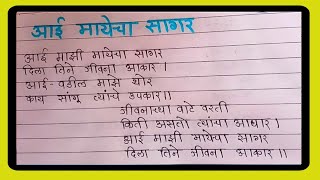 आई मायेचा सागर
आई माझी मायेचा सागर
दिला तिने जीवना आकार ।
आई - वडील माझे थोर
काय सांगू त्यांचे उपकार ॥
जीवनाच्या वाटे वरती
किती असतो त्याचा आधार ।
आई माझी मायेचा सागर
दिला तिने जीवना आकार ॥